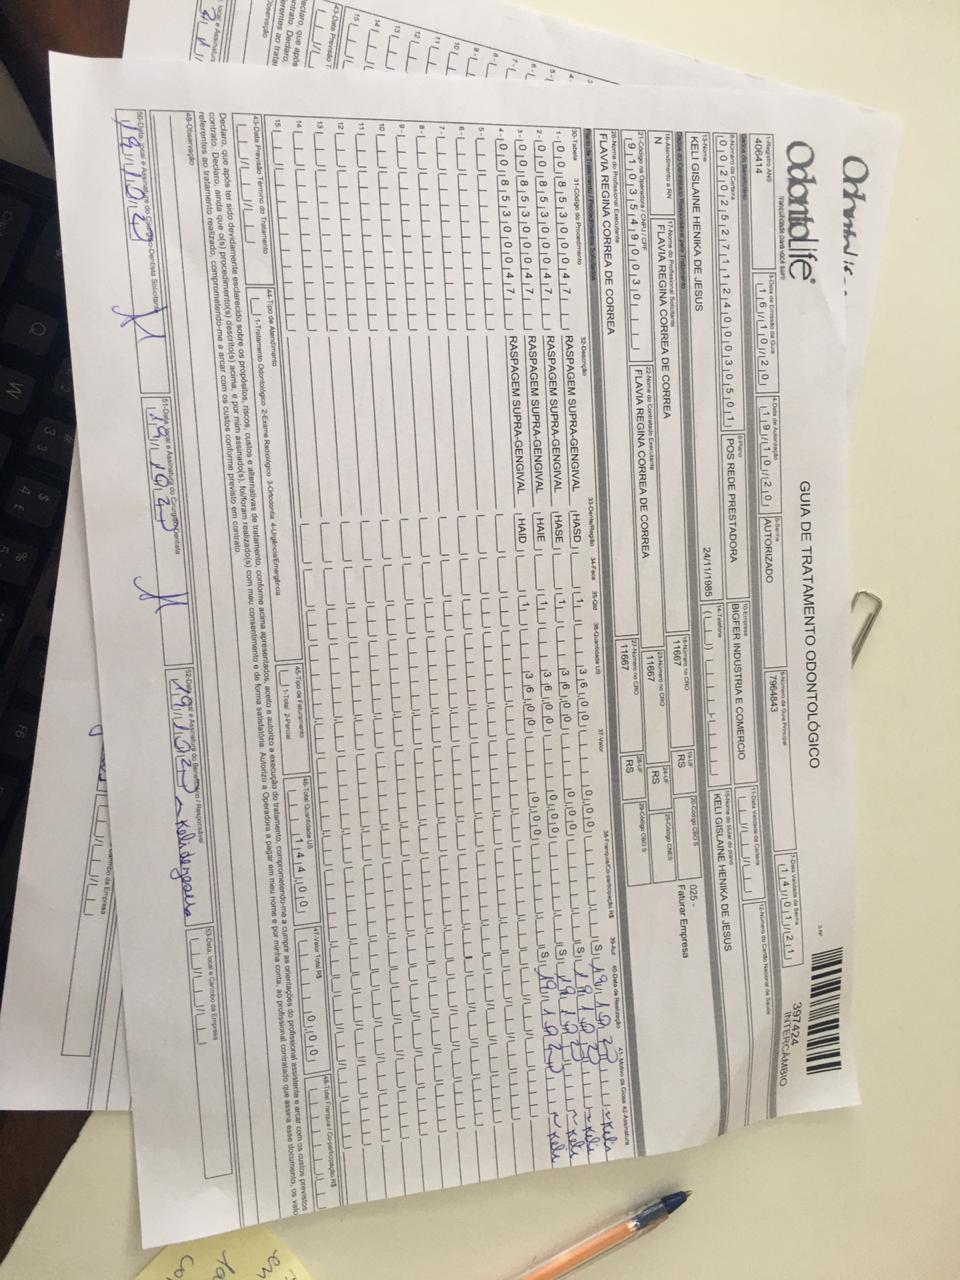 OdontoLife®
Tranquilidade para você sorrir
GUIA DE TRATAMENTO ODONTOLÓGICO
2-Nº
397424
INTERCÂMBIO
1-Registro ANS
406414
3-Data de Emissão da Guia
16/10/20
4-Data de Autorização
19/10/20
5-Senha
AUTORIZADO
6-Número da Guia Principal
7964843
7-Data Validade da Senha
14/01/21
8-Número da Carteira
00202527112400030501
9-Plano
POS REDE PRESTADORA
10-Empresa
BIGFER INDUSTRIA E COMERCIO
11-Data Validade da Carteira
12-Número do Cartão Nacional de Saúde
13-Nome
KELI GISLAINE HENIKA DE JESUS
24/11/1985
14-Telefone
15-Nome do titular do plano
KELI GISLAINE HENIKA DE JESUS
16-Atendimento a RN
N
17-Nome do Profissional Solicitante
FLAVIA REGINA CORREA DE CORREA
18-Número no CRO
11667
19-UF
RS
20-Código CBO S
025 -
Faturar Empresa
21-Código na Operadora / CNPJ / CPF
91035490030
22-Nome do Contratado Executante
FLAVIA REGINA CORREA DE CORREA
23-Número no CRO
11667
24-UF
RS
25-Código CNES
26-Nome do Profissional Executante
FLAVIA REGINA CORREA DE CORREA
27-Número no CRO
11667
28-UF
RS
29-Código CBO S
30-Tabela 31-Código do Procedimento 32-Descrição 33-Dente/Região 34-Face 35-Qtd 36-Quantidade US 37-Valor 38-Franquia/Co-participação R$ 39-Aut 40-Data de Realização 41-Motivo da Glosa 42-Assinatura
1- 00 85300047 RASPAGEM SUPRA-GENGIVAL HASD 1 36,00 0,00 S 19/10/20 Keli
2- 00 85300047 RASPAGEM SUPRA-GENGIVAL HASE 1 36,00 0,00 S 19/10/20 Keli
3- 00 85300047 RASPAGEM SUPRA-GENGIVAL HAIE 1 36,00 0,00 S 19/10/20 Keli
4- 00 85300047 RASPAGEM SUPRA-GENGIVAL HAID 1 36,00 0,00 S 19/10/20 Keli
5-
6-
7-
8-
9-
10
11
12
13
14
15
43-Data Previsão Término do Tratamento
44-Tipo de Atendimento
1-Tratamento Odontológico 2-Exame Radiológico 3-Ortodontia 4-Urgência/Emergência
45-Tipo de Faturamento
1-Total 2-Parcial
46-Total Quantidade US
144,00
47-Valor Total R$
0,00
48-Total Franquia / Co-participação R$
Declaro, que após ter sido devidamente esclarecido sobre os propósitos, riscos, custos e alternativas de tratamento, conforme acima apresentados, aceito e autorizo a execução do tratamento, comprometendo-me a cumprir as orientações do profissional assistente e arcar com os custos previstos
contrato. Declaro, ainda que o(s) procedimento(s) descrito(s) acima, e por mim assinado(s), foi/foram realizado(s) com meu consentimento e de forma satisfatória. Autorizo a Operadora a pagar em meu nome e por minha conta, ao profissional contratado que assina esse documento, os valo
referentes ao tratamento realizado, comprometendo-me a arcar com os custos conforme previsto em contrato.
49-Observação
50-Data, local e Assinatura do Cirurgião-Dentista Solicitante
19/10/20
51-Data, local e Assinatura do Cirurgião-Dentista
19/10/20
52-Data, local e Assinatura do Beneficiário / Responsável
19/10/20
53-Data, local e Carimbo da Empresa